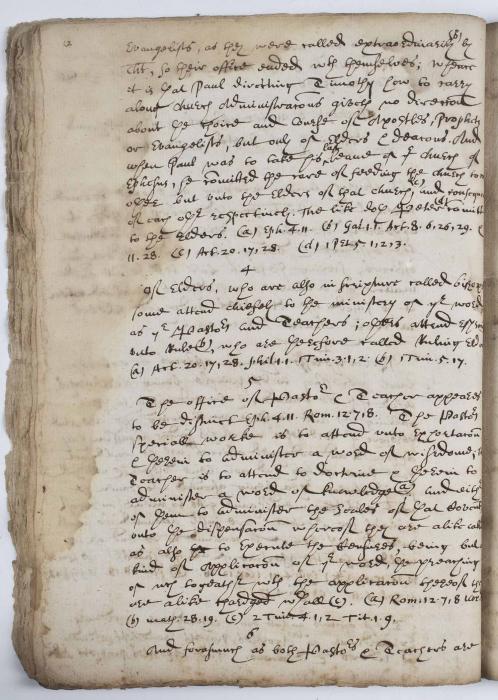 Evangelists, as they were called extraordinarily (b) by
Christ, so their office ended wth themselves; whence
it is that Paul directing Timothy how to carry
along Church Administracons giveth no direction
about the choice and course of Apostles, Prophets
or Evangelists, but only of Elders & deacons. And
when Paul was to take his last leave of ye church of
Ephesus, he comitted the care of feeding the church to no
other but unto the Elders of that church, and
The like doth Peter comitt
to the Elders. (a) Eph. 4. 11. (b) Gal. 1. 1. Act. 8. 6, 26, 29.
11. 28. (c) Act. 20. 17, 28. (d) 1 Pet. 5. 1, 2, 3.
4
Of Elders, who are also in Scripture called
some attend chiefely to the ministery of ye word
as ye Pastors and Teachers; others attend
unto Rule (b), who are therefore called Ruling
(a) Act. 20. 17, 28. Phil. 1. 1. 1 Tim. 3. 1, 2. (b) 1 Tim. 5. 17.
5
The office of Pastor & Teacher appeares
to be distinct Eph. 4. 11. Rom. 12. 7, 8. The Pastors
speciall worke is to attend unto Exhortacon
& therein to administer a word of wisdome;
Teacher is to attend to doctrine & therein to
administer a word of knowledge (a) and
of them to administer the Seales of that
unto the dispensacon whereof they are alike
as also to Execute the Censures, being but
kind of Applicacon of ye word, the preaching
of wch togeather wth the applicacon thereof
are alike charged wthall (c). (a) Rom. 12. 7, 8
(b) math. 28. 19. (c) 2 Tim. 4. 1, 2. Tit. 1. 9.
6
And forasmuch as both Pastors & Teachers are